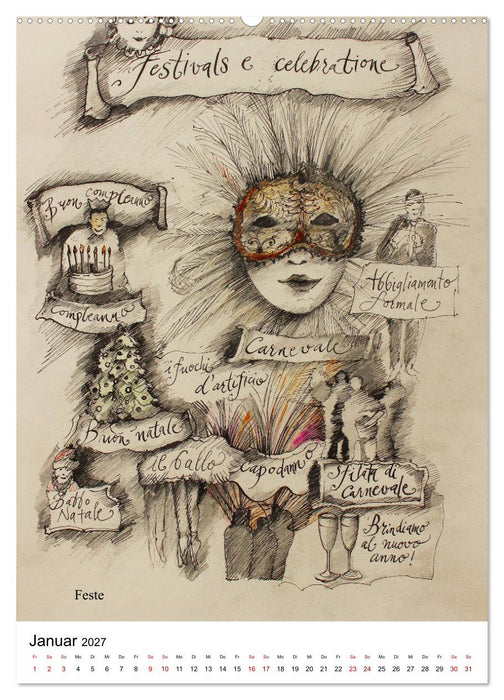 Festivals e celebratione
Buon compleanno
Compleanno
Abbigliamento
formale
Carnevale
i fuochi
d'artificio
Buon natale
il ballo
Capodanno
Sfilata di
Carnevale
Babbo
Natale
Brindiamo
al nuovo
anno!
Feste
Januar 2027
Fr Sa So Mo Di Mi Do Fr Sa So Mo Di Mi Do Fr Sa So Mo Di Mi Do Fr Sa So Mo Di Mi Do Fr Sa So
1 2 3 4 5 6 7 8 9 10 11 12 13 14 15 16 17 18 19 20 21 22 23 24 25 26 27 28 29 30 31